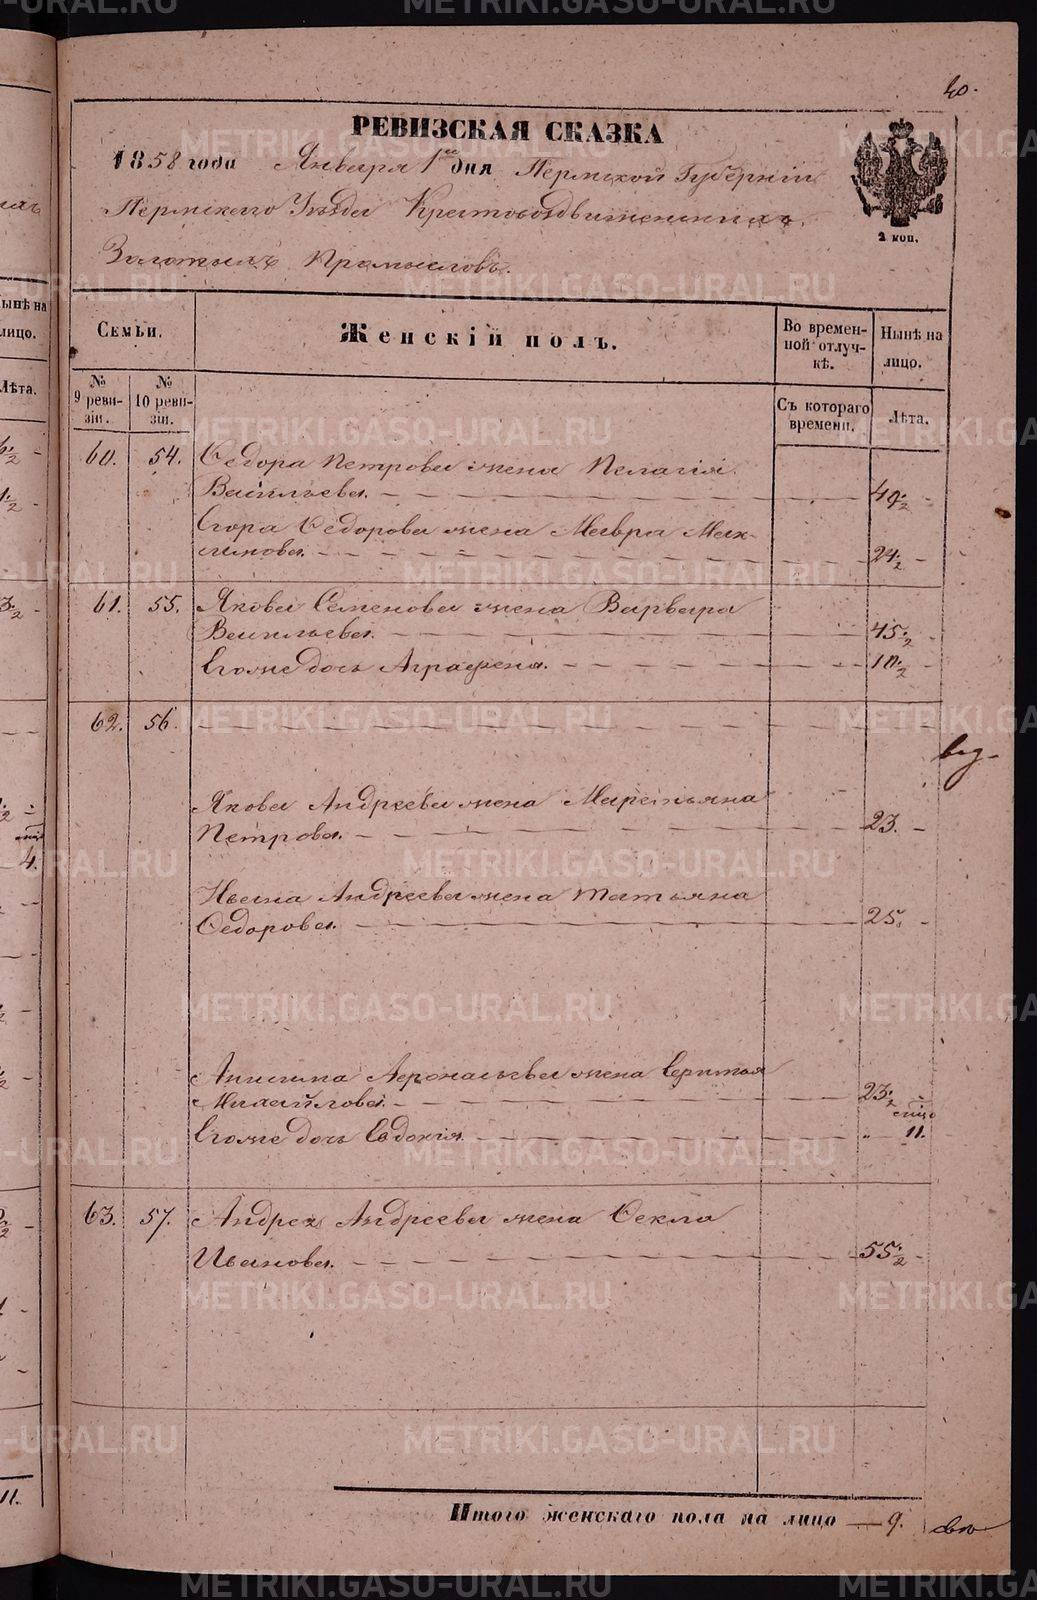 40.
РЕВИЗСКАЯ СКАЗКА
1858 года Января 1го дня Пермской Губерніи
Пермскаго Уѣзда Крестовоздвиженскихъ
Золотыхъ Промысловъ.
2 коп.
Семьи.
Женскій полъ.
Во времен-
ной отлуч-
кѣ.
Нынѣ на
лицо.
№
9 реви-
зіи.
№
10 реви-
зіи.
Съ котораго
времени.
Лѣта.
60. 54. Ѳедора Петрова жена Пелагія
Васильева. 49½
Егора Ѳедорова жена Мавра Мак-
симова. 24½
61. 55. Якова Семенова жена Варвара
Васильева. 45½
Егоже дочь Аграфена.
62. 56.
Якова Андреева жена Маремьяна
Петрова. 23.
Ивана Андреева жена Татьяна
Ѳедорова. 25.
Анисима Аѳонасьева жена
Михайлова. 23½
Егоже дочь Евдокія. " 11.
63. 57. Андрея Андреева жена Ѳекла
Иванова. 55½
Итого женскаго пола на лицо — 9.
METRIKI.GASO-URAL.RU